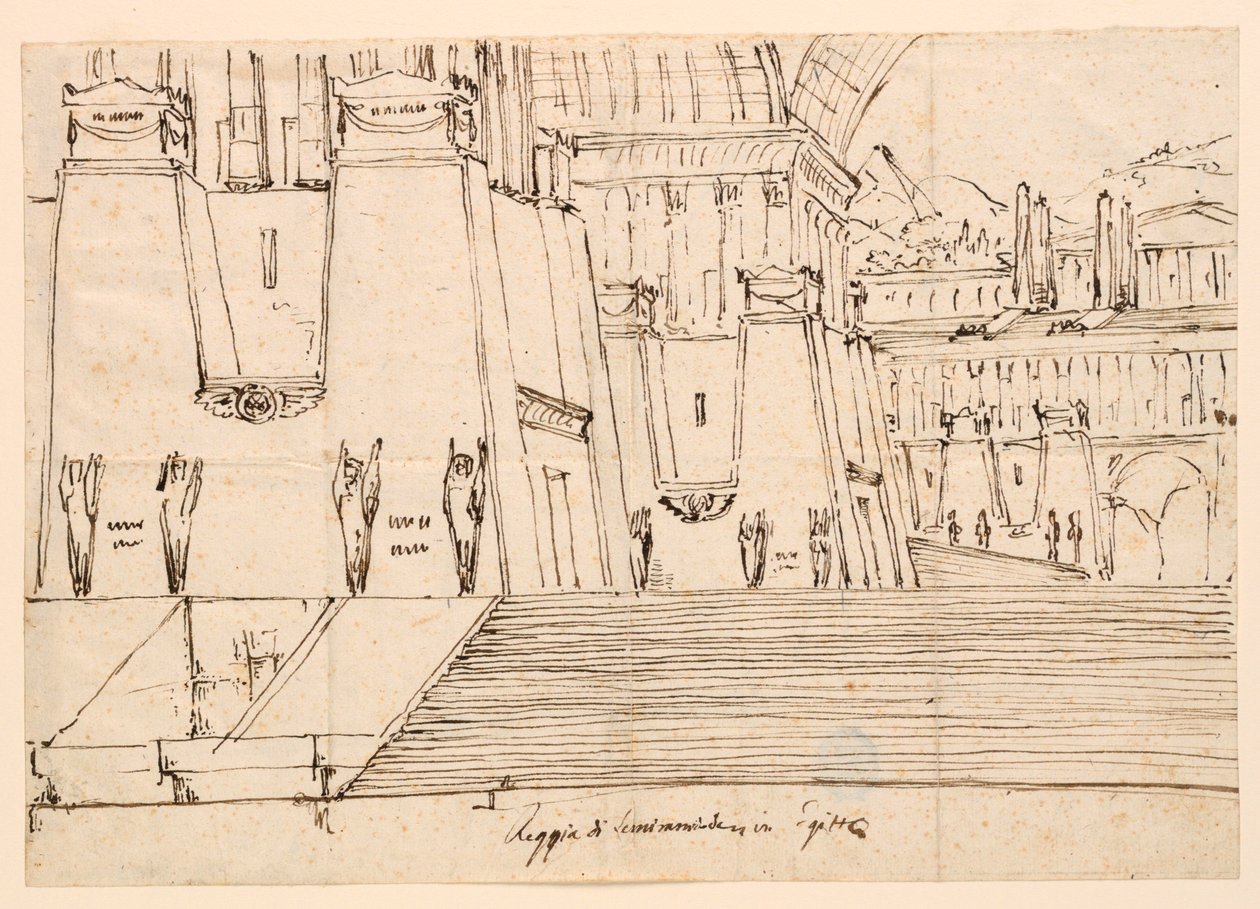 Reggia di Semiramide in Egitto